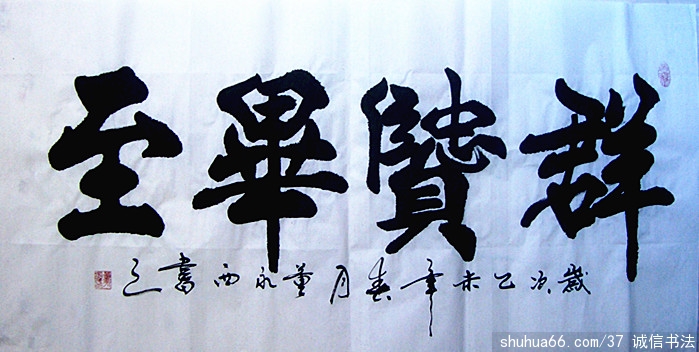 群賢畢至
歲次乙未年春月董永西書之
shuhua66.com/37 诚信书法